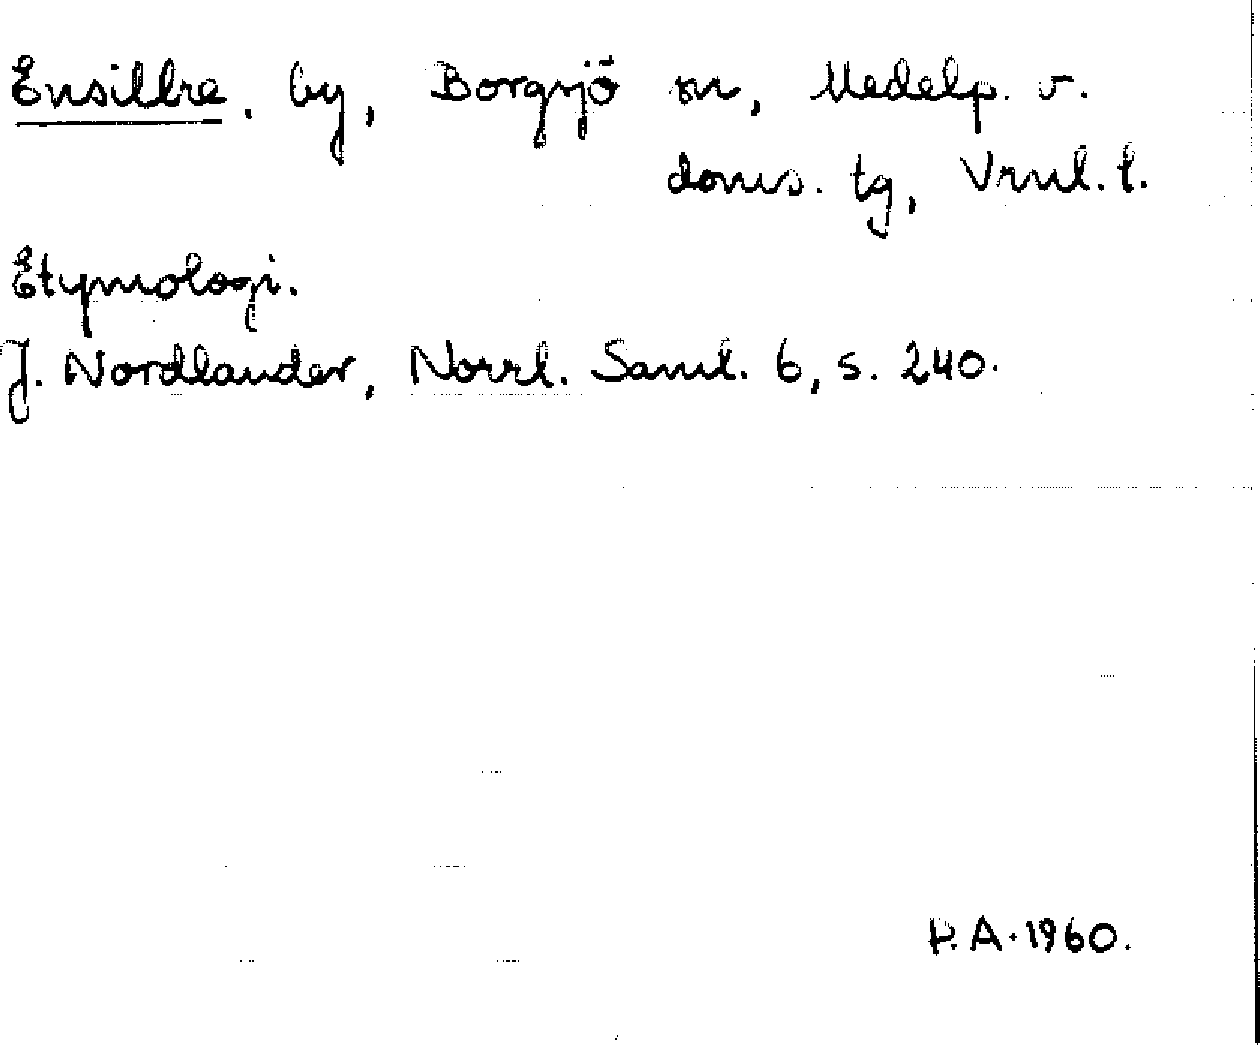 Ensillre. by, Borgsjö sn, Medelp. v.
doms. tg, Vrnl. l.
Etymologi.
J. Nordlander, Norrl. Saml. 6, s. 240.
P.A. 1960.